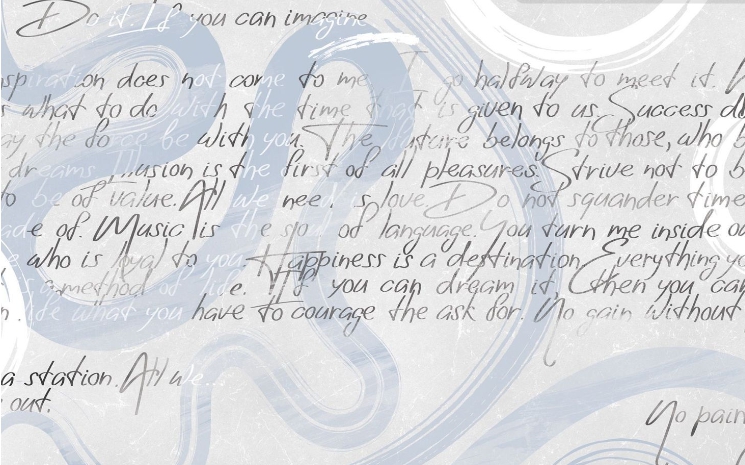 Do it. If you can imagine
spiration does not come to me, I go halfway to meet it.
what to do with the time that is given to us. Success
the force be with you. The future belongs to those, who b
dreams. Illusion is the first of all pleasures. Strive not to b
to be of value. All we need is love. Do not squander time
ade of. Music is the of language. You turn me inside ou
who is loyal to you. Happiness is a destination. Everything yo
a method of life. If you can dream it, then you can
what you have to courage the ask for. No gain without
a station. All we...
out.
No pain